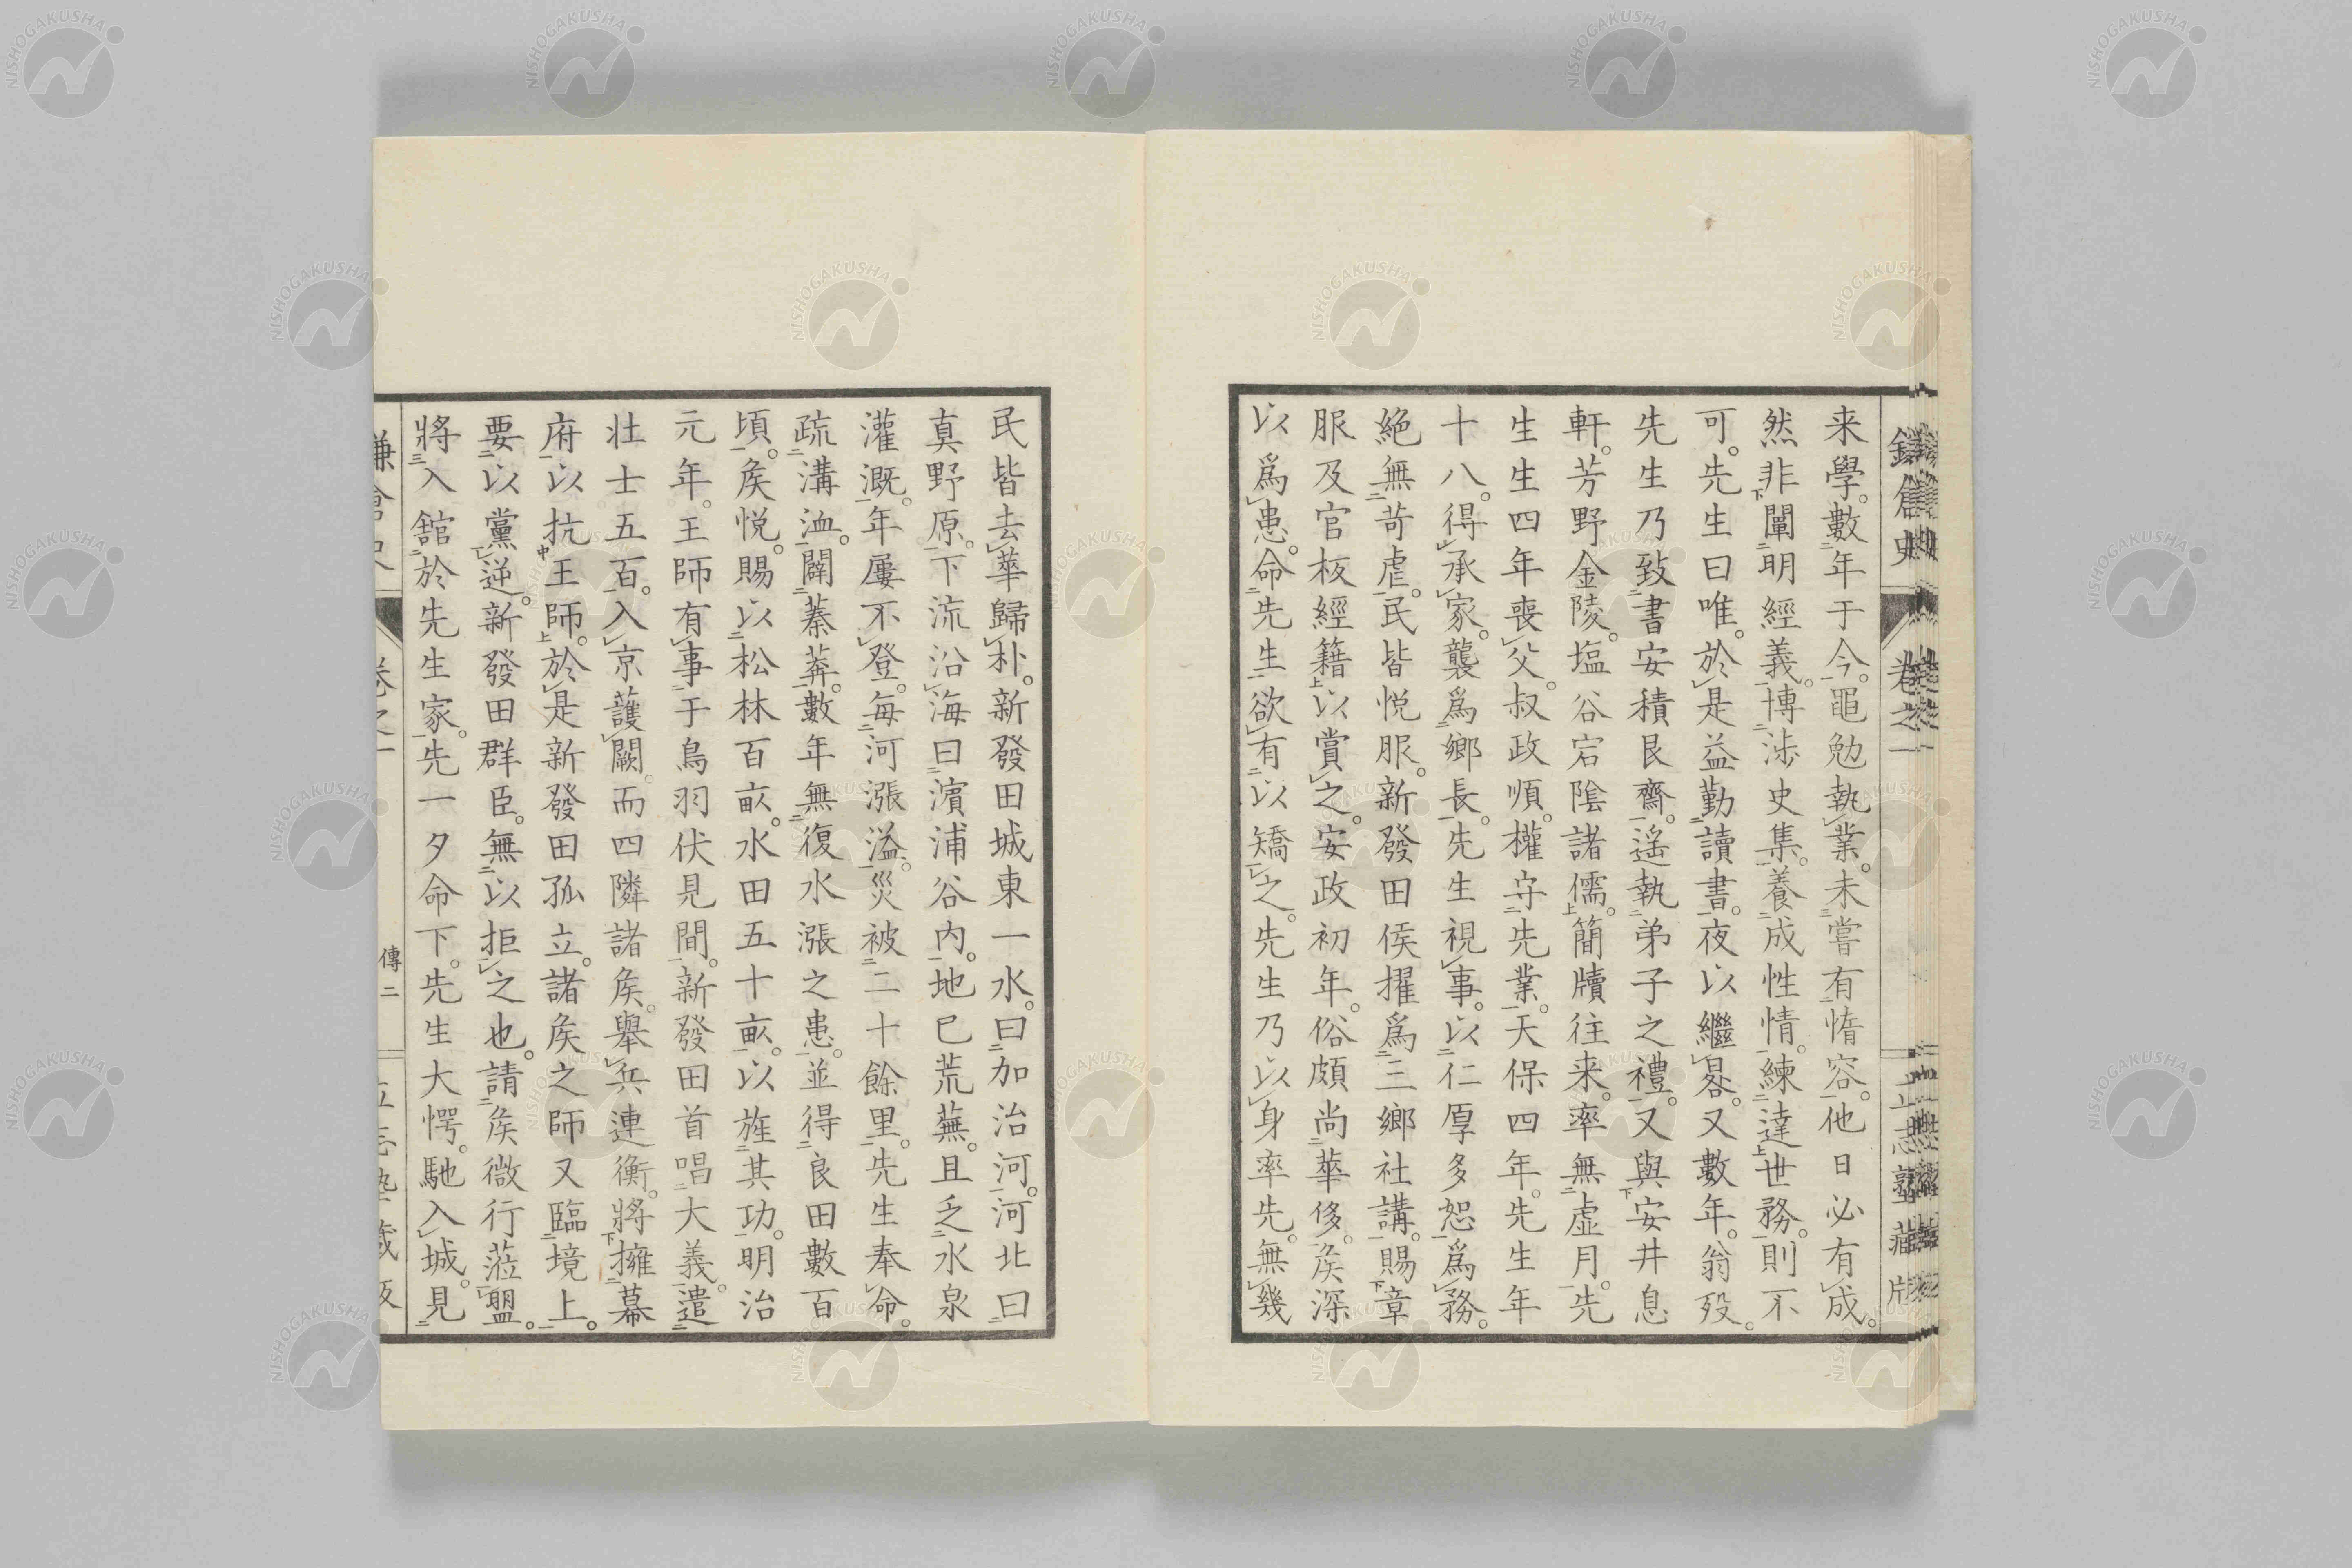 来學。數年于今。黽勉執業。未嘗有惰容。他日必有成。
然非闡明經義。博渉史集。養成性情。練達世務。則不
可。先生曰唯。於是益勤讀書。夜以繼晷。又數年。翁歿。
先生乃致書安積艮齋。遥執弟子之禮。又與安井息
軒。芳野金陵。塩谷宕陰諸儒。簡牘往来。率無虚月。先
生生四年喪父。叔政順。權守先業。天保四年。先生年
十八。得承家。襲爲鄉長。先生視事。以仁厚多恕爲務。
絶無苛虐。民皆悦服。新發田侯擢爲三鄉社講。賜章
服及官板經籍以賞之。安政初年。俗頗尚華侈。矦深
以爲患。命先生欲有以矯之。先生乃以身率先。無幾
民皆去華歸朴。新發田城東一水。曰加治河。河北曰
真野原。下流沿海曰濵浦谷内。地已荒蕪。且乏水泉
灌溉。年屢不登。毎河漲溢。災被二十餘里。先生奉命。
疏溝洫。闢蓁莽。數年無復水漲之患。並得良田數百
頃。矦悦。賜以松林百畝。水田五十畝。以旌其功。明治
元年。王師有事于鳥羽伏見間。新發田首唱大義。遣
壮士五百。入京護闕。而四隣諸矦。舉兵連衡。將擁幕
府以抗王師。於是新發田孤立。諸矦之師又臨境上。
要以黨逆。新發田群臣。無以拒之也。請矦微行蒞盟。
將入舘於先生家。先一夕命下。先生大愕。馳入城。見
卷之一
傳二